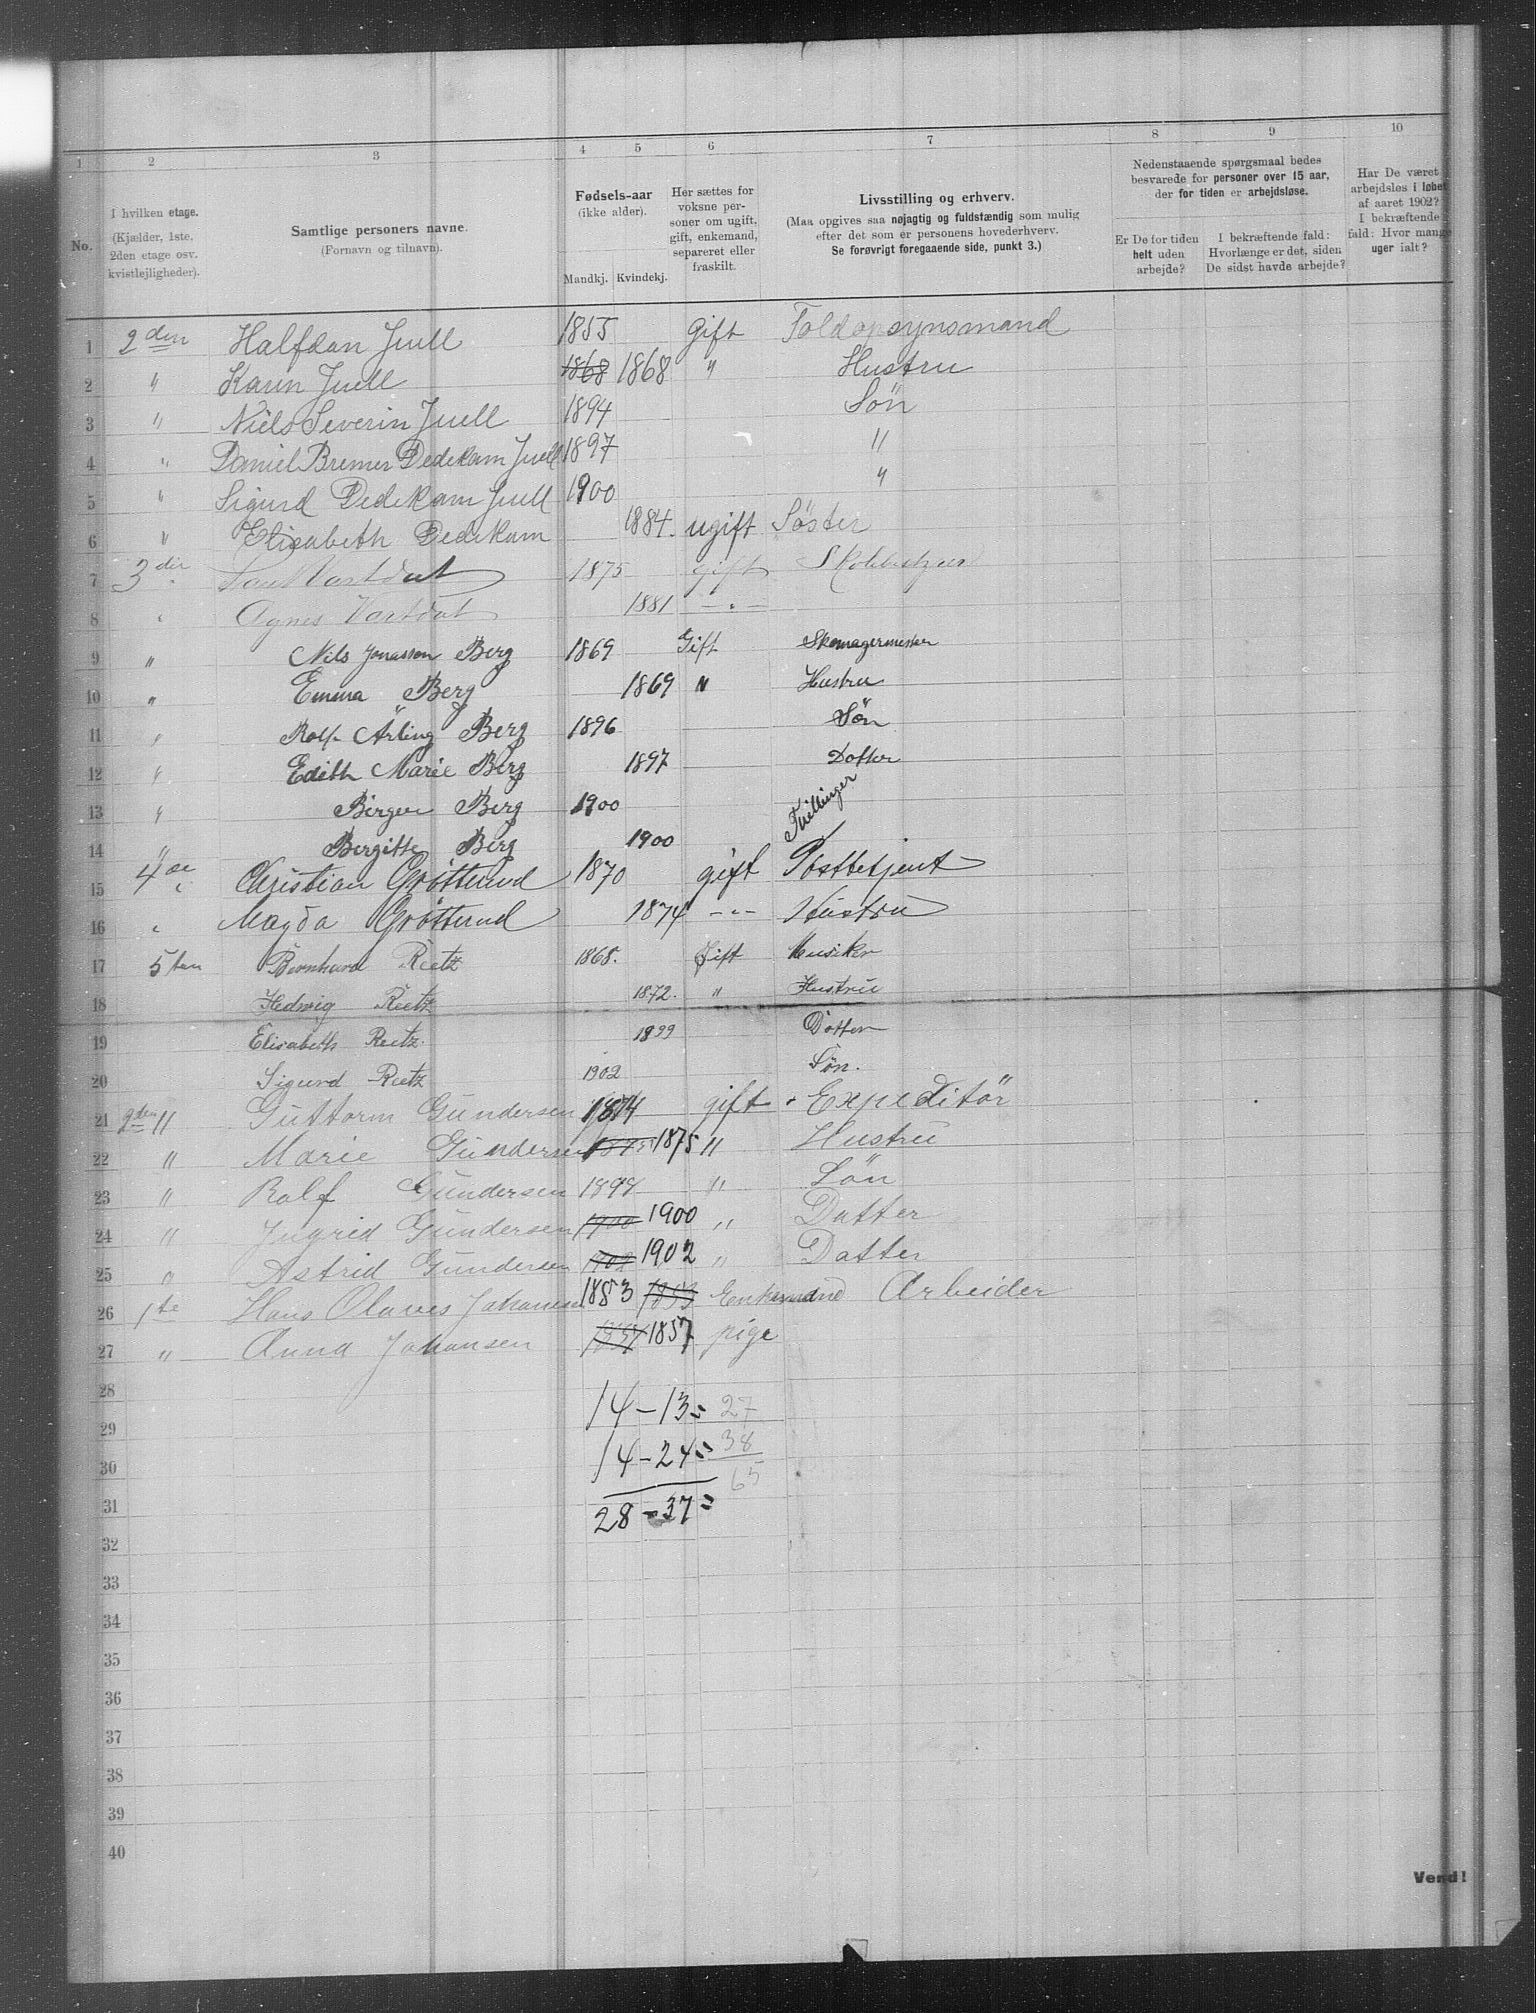 1 2 3 4 5 6 7 8 9 10
No.
I hvilken etage. (Kjælder, 1ste. 2den etage osv. kvistlejligheder).
Samtlige personers navne. (Fornavn og tilnavn).
Fødsels-aar (ikke alder). Mandkj. Kvindekj.
Her sættes for voksne personer om ugift, gift, enkemand, separeret eller fraskilt.
Livsstilling og erhverv. (Maa opgives saa nøjagtig og fuldstændig som mulig efter det som er personens hovederhverv. Se forøvrigt foregaaende side, punkt 3.)
Nedenstaaende spørgsmaal bedes besvarede for personer over 15 aar, der for tiden er arbejdsløse.
Er De for tiden helt uden arbejde?
I bekræftende fald: Hvorlænge er det, siden De sidst havde arbejde?
Har De været arbejdsløs i løbet af aaret 1902? I bekræftende fald: Hvor mange uger ialt?
1 2den Halfdan Juell 1855 Gift Toldopsynsmand
2 " Karin Juell 1868 1868 " Hustru
3 " Niels Severin Juell 1894 Søn
4 " Daniel Bremer Dedekam Juell 1897 "
5 " Sigurd Dedekam Juell 1900 "
6 " Elisabeth Dedekam 1884. ugift Søster
7 3die 1875 gift
8 " Agnes 1881 - " -
9 " Nils Jonasson Berg 1869 Gift Skomagermester
10 " Emma Berg 1869 " Hustru
11 " Rolf Arling Berg 1896 Søn
12 " Edith Marie Berg 1897 Dotter
13 " Birger Berg 1900 Tvillinger
14 " Bergitte Berg 1900
15 4de Christian Grøtterud 1870 gift Postbetjent
16 " Magda Grøtterud 1874 - " - Hustru
17 5ten Bernhard Reetz 1868. Gift Musiker
18 Hedwig Reetz 1872. " Hustru
19 Elisabeth Reetz. 1899 Dotter
20 Sigurd Reetz 1902 Søn.
21 2den " Guttorm Gundersen 1874 gift Expeditør
22 " Marie Gundersen 1875 1875 " Hustru
23 " Rolf Gundersen 1898 " Søn
24 " Ingrid Gundersen 1900 1900 " Datter
25 " Astrid Gundersen 1902 1902 " Datter
26 1ste Hans Olaves Johansen 1853 1853 Enkemand Arbeider
27 " Anna Johansen 1857 pige
28
29 14 – 13 = 27
30 14 – 24 = 38
65
31 28 – 37 =
32
33
34
35
36
37
38
39
40
Vend!